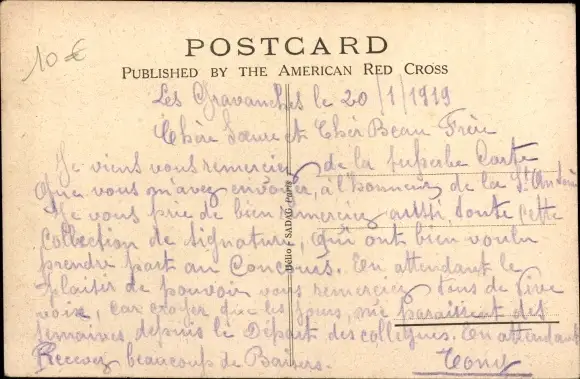 10€
POSTCARD
PUBLISHED BY THE AMERICAN RED CROSS
Les Gravanches le 20/1/1919
Chère Soeur et Cher Beau Frère
Je viens vous remercier de la superbe Carte
que vous m'avez envoyer, à l'honneur de la St Antoine
Je vous prie de bien remercier aussi toute cette
collection de signature, qui ont bien voulu
prendre part au Concours. En attendant le
plaisir de pouvoir vous remercier tous de vive
voix, car croyer que les jours, me paraissent des
semaines depuis le Départ des collègues. En attendant
Recevez beaucoup de Baisers.
Tony
Hélio SADAG Paris